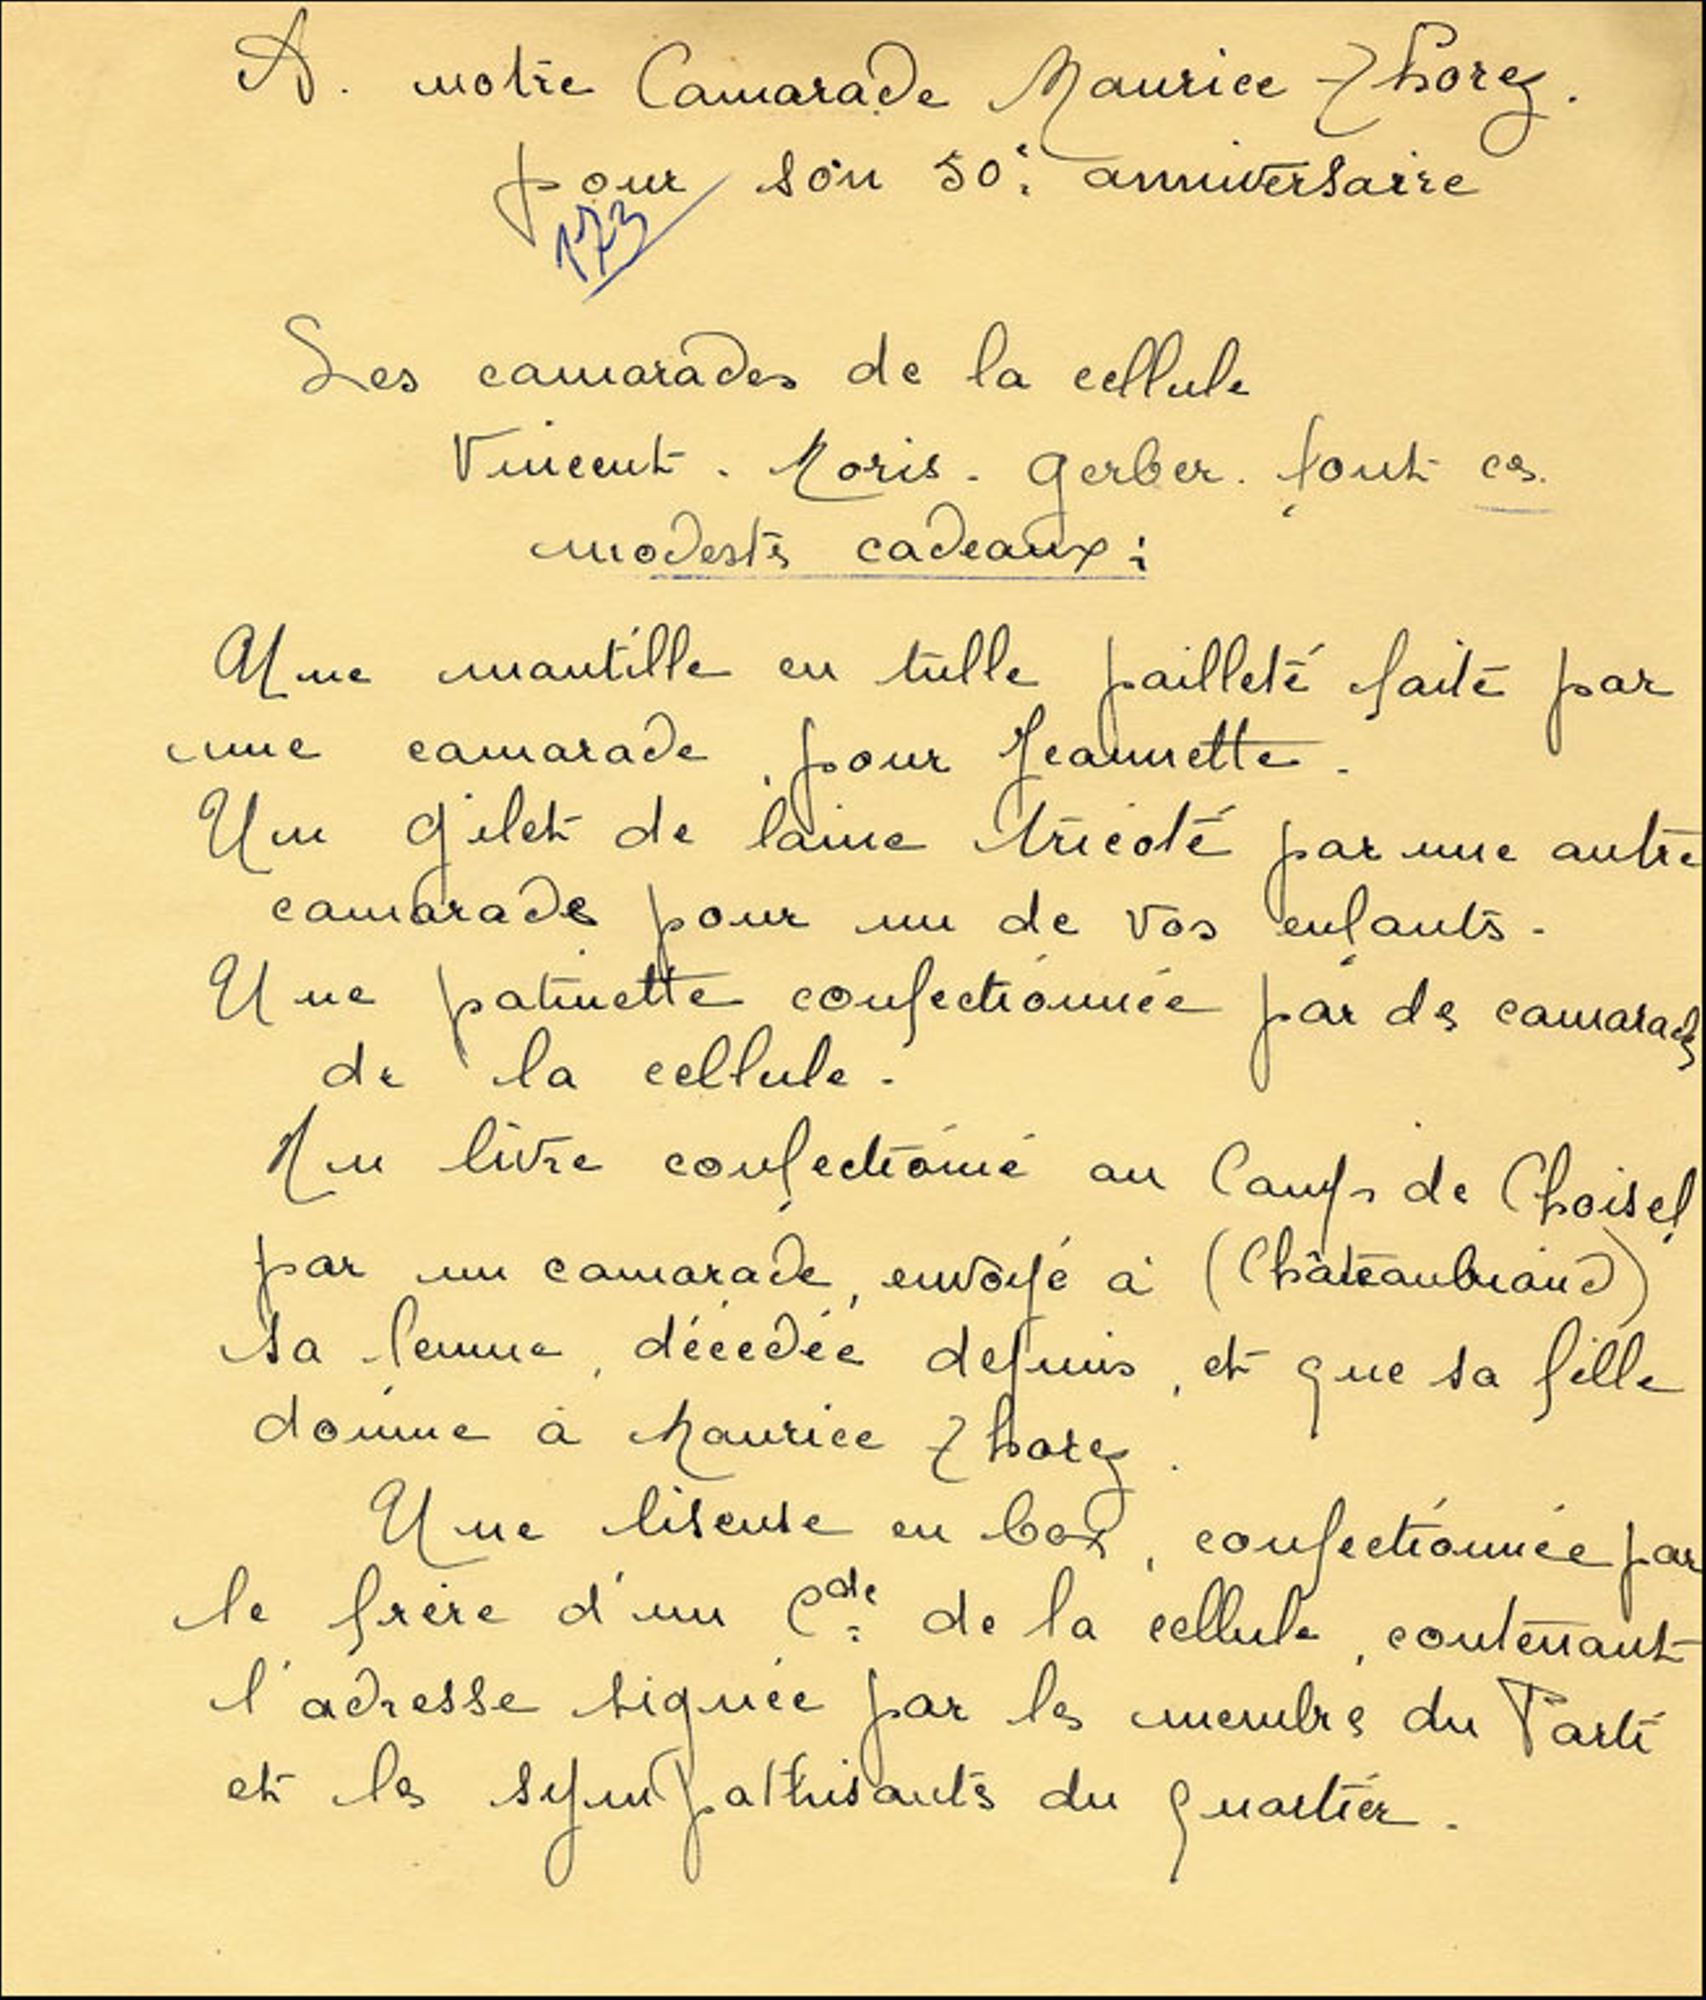 A. notre Camarade Maurice Thorez.
pour son 50e anniversaire
173
Les camarades de la cellule
Vincent. Moris. Gerber. font ces
modestes cadeaux :
Une mantille en tulle pailleté faite par
une camarade, pour Jeannette.
Un gilet de laine tricoté par une autre
camarade pour un de vos enfants.
Une patinette confectionnée par des camarades
de la cellule.
Un livre confectionné au Camp de Choisel
par un camarade, envoyé à (Châteaubriand)
sa femme, décédée depuis, et que sa fille
donne à Maurice Thorez.
Une liseuse en box, confectionnée par
le frère d'un Cde de la cellule, contenant
l'adresse signée par les membres du Parti
et les sympathisants du quartier.